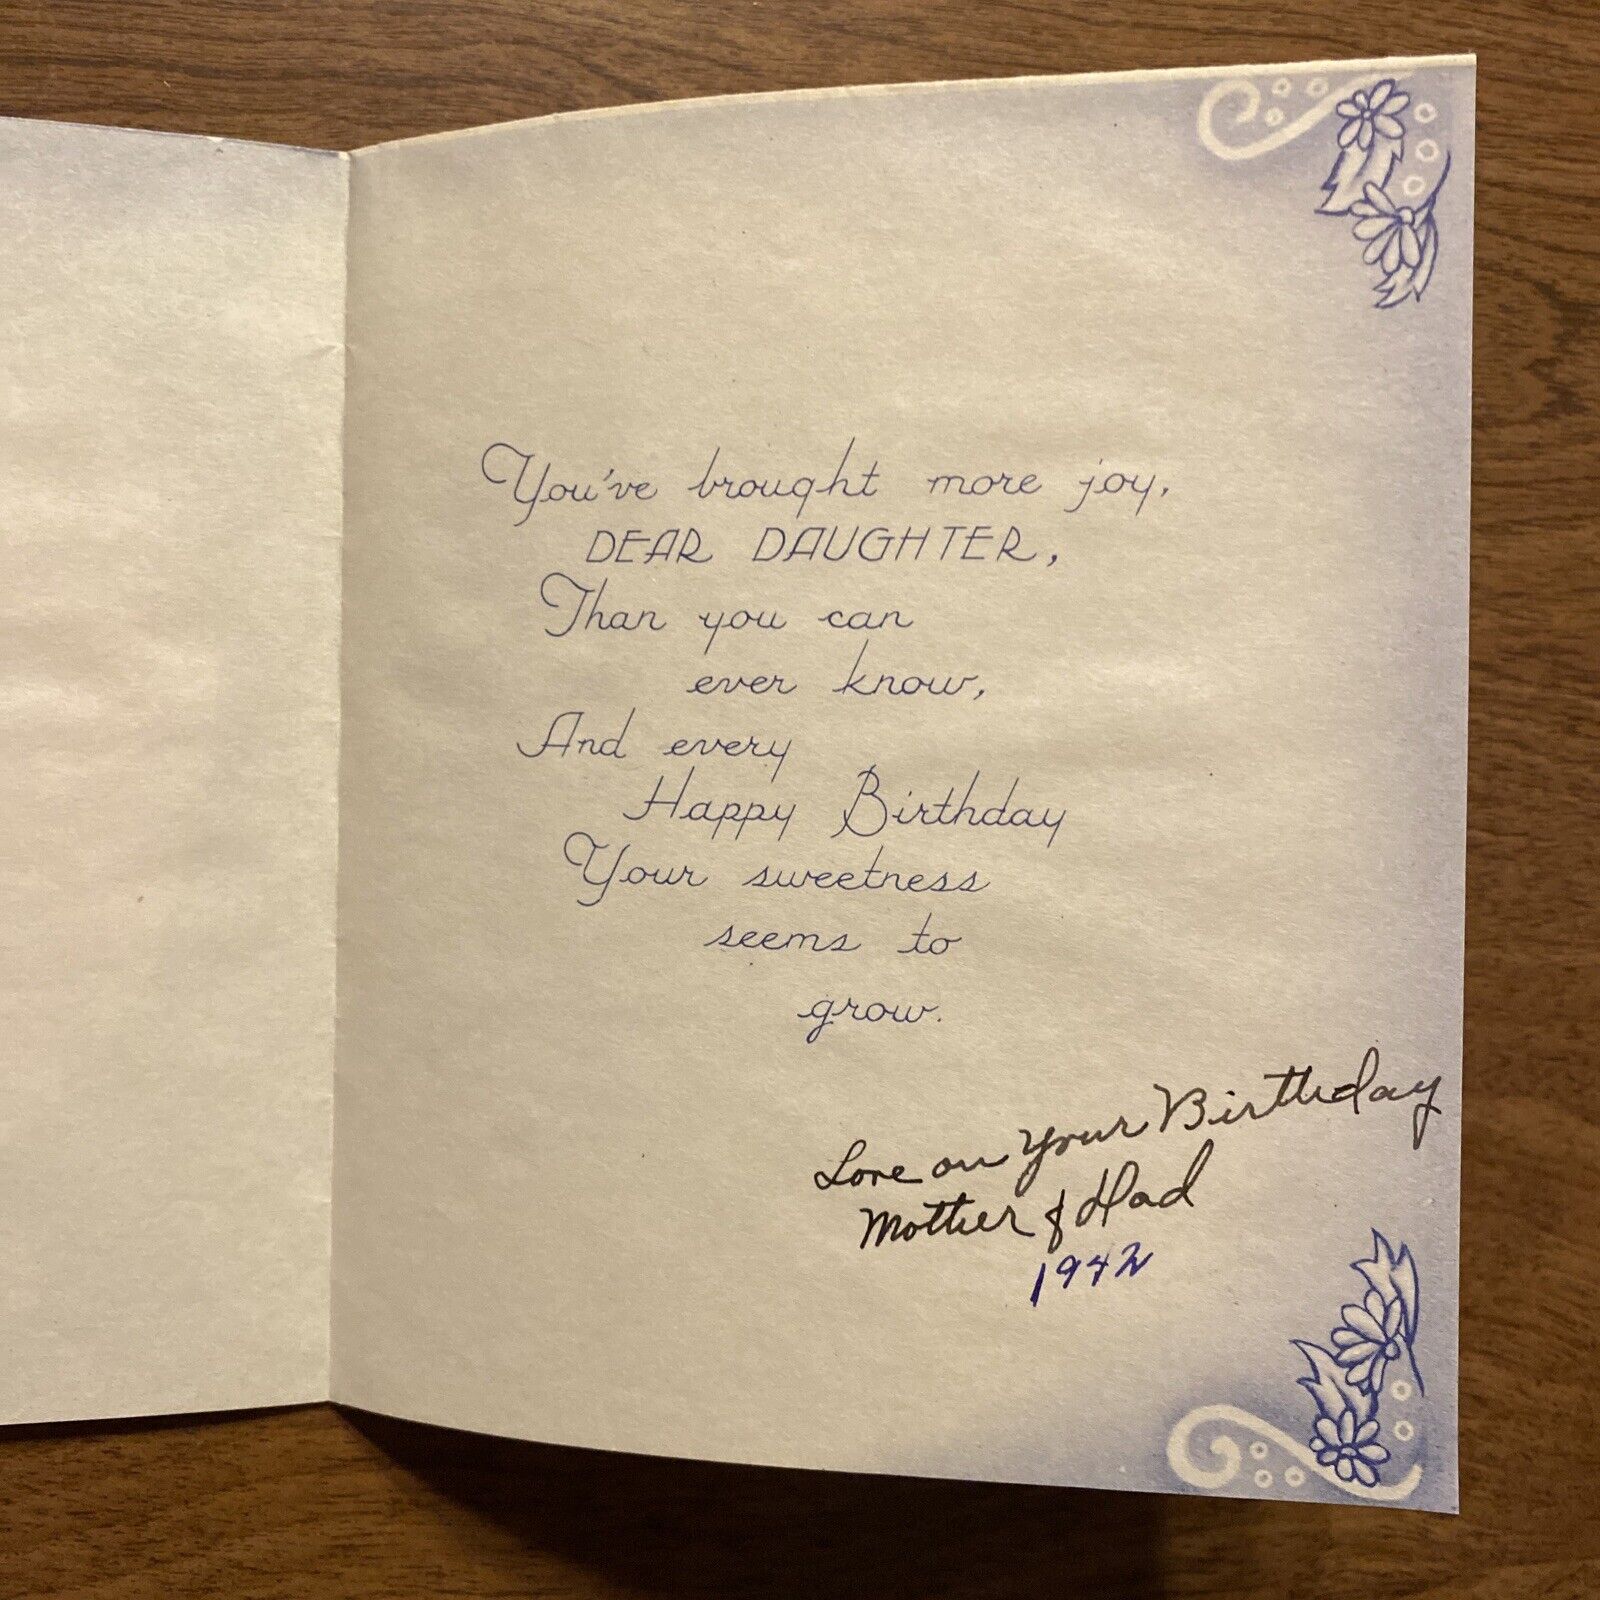 You've brought more joy,
DEAR DAUGHTER,
Than you can
ever know,
And every
Happy Birthday
Your sweetness
seems to
grow.
Love on your Birthday
Mother & Dad
1942